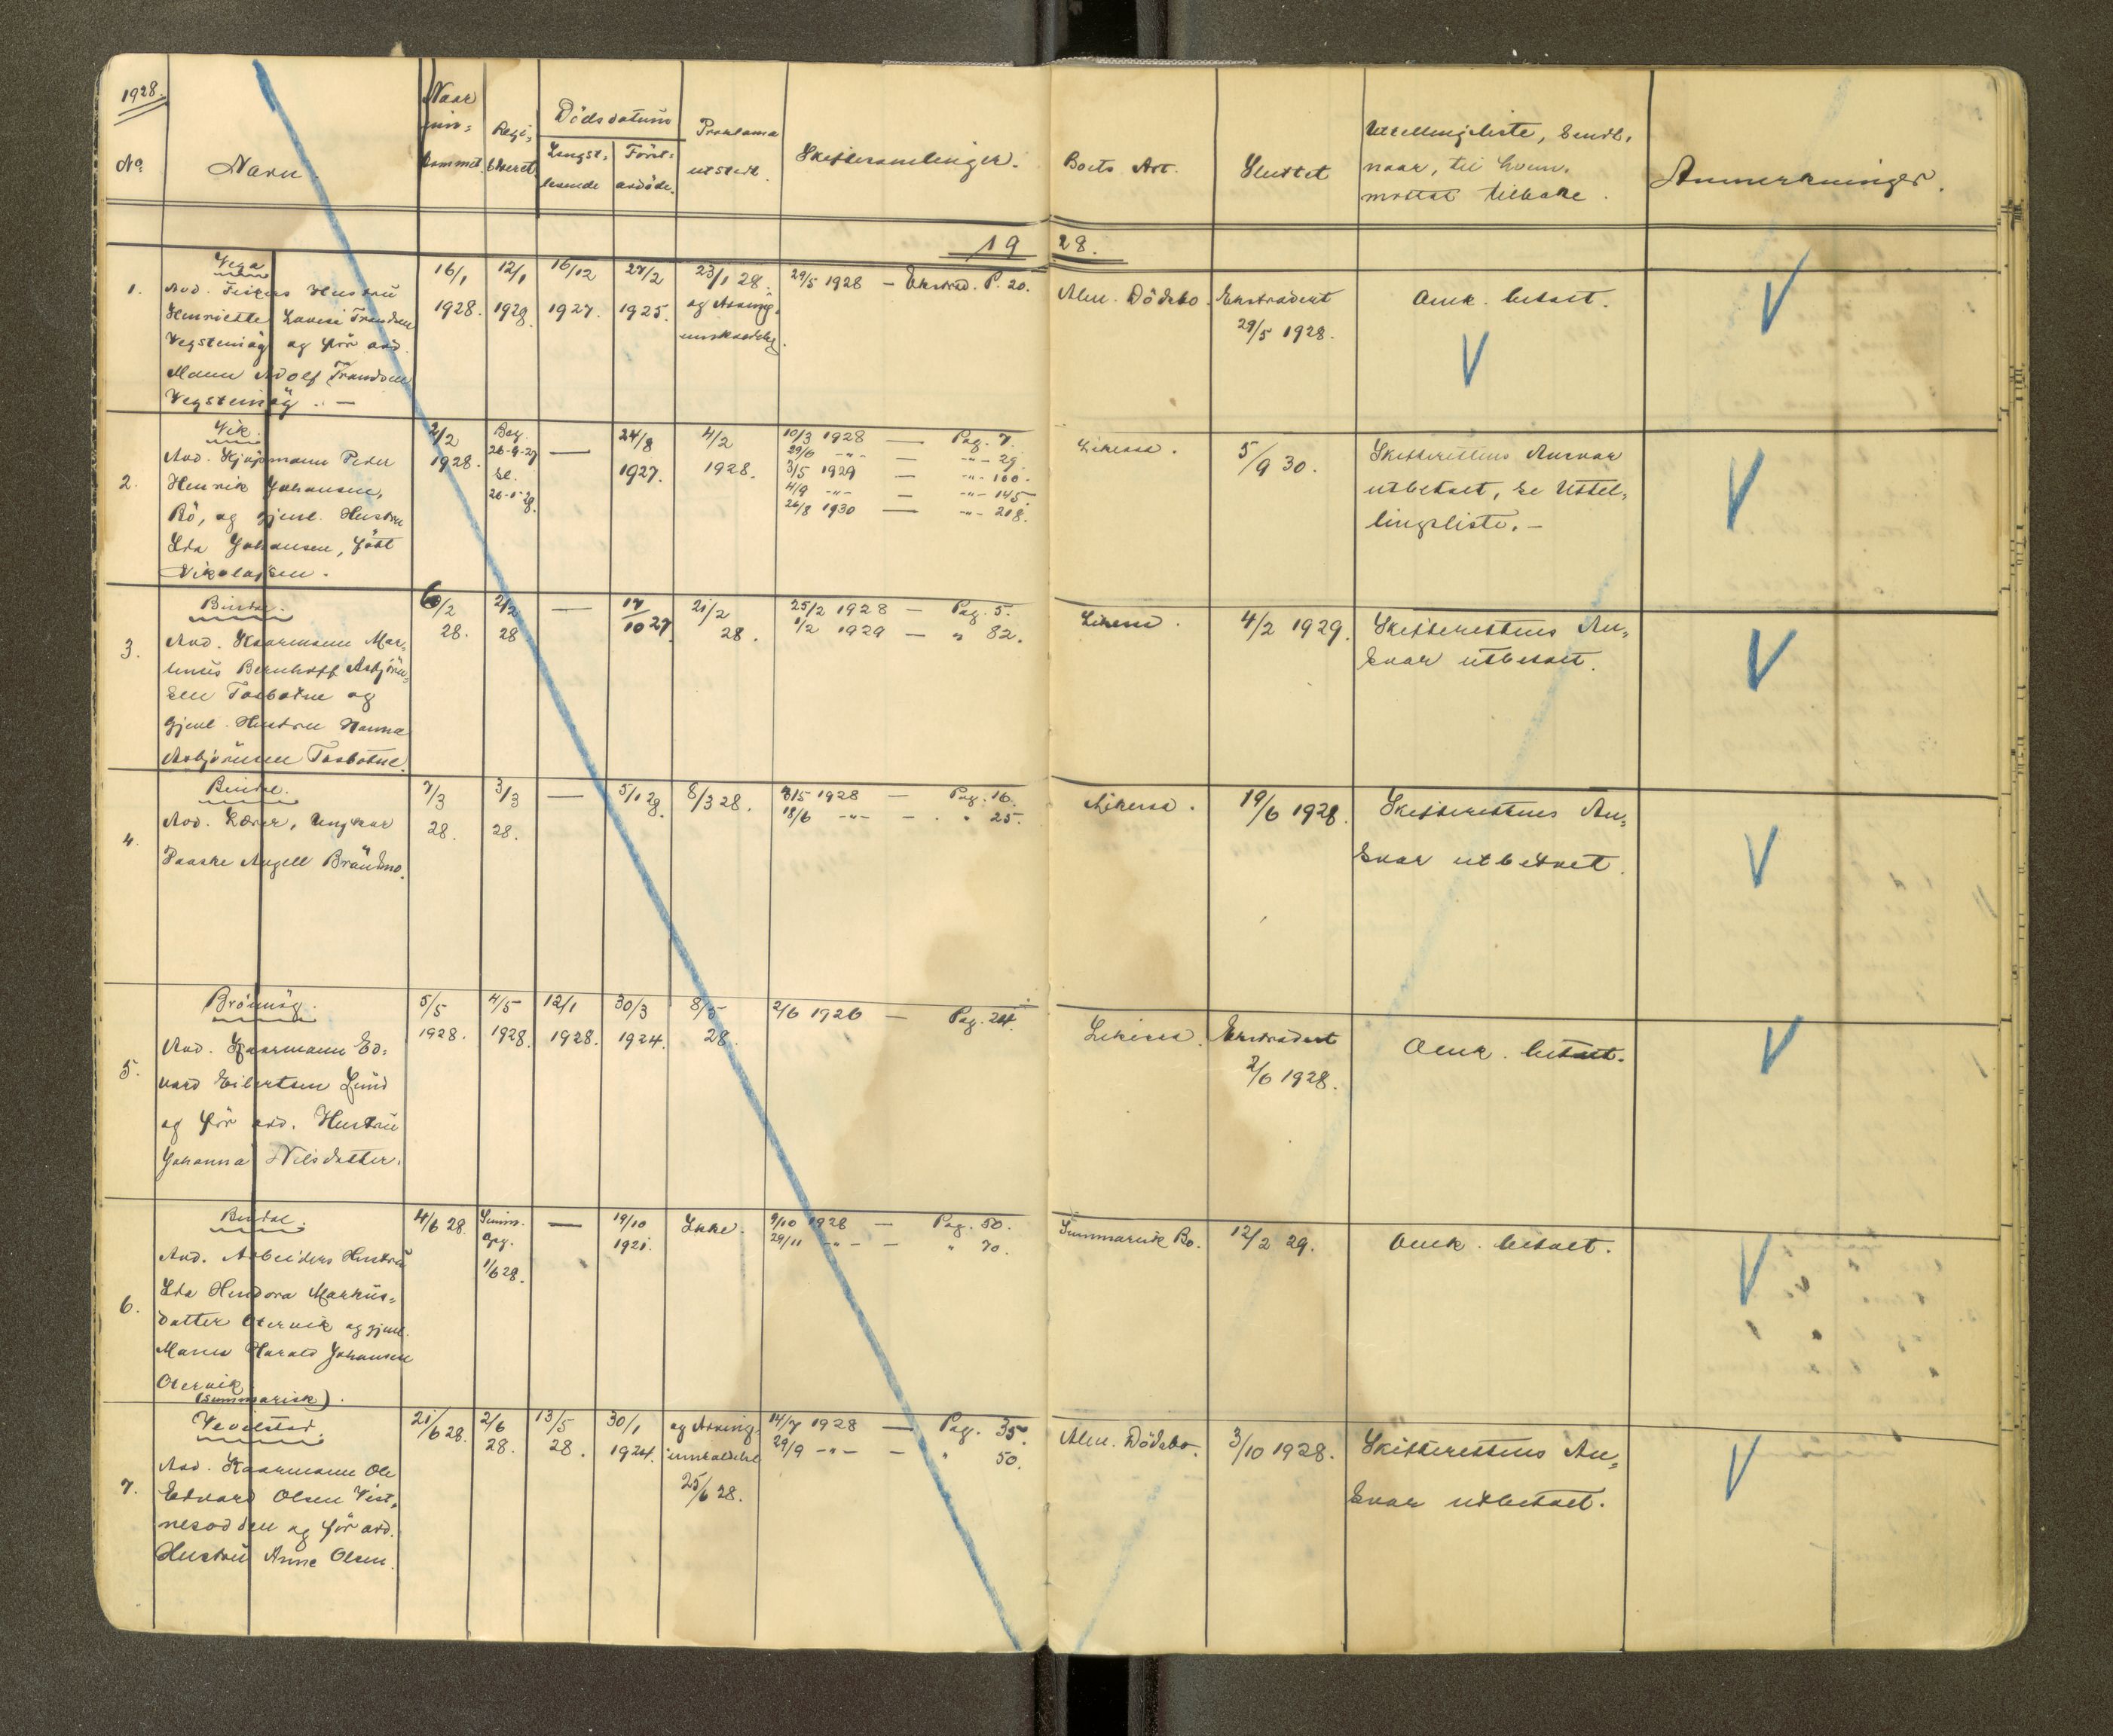 1928.
No
Navn.
Naar
inn-
kommet.
Regi-
streret
Dödsdatum
Lengst-
levende
Först-
avdöde.
Proklama
utstedt.
Skiftesamlinger.
Boets Art.
Sluttet
Utstellingsliste, Sendt,
naar, til hvem.
mottat tilbake.
Anmerkninger.
1928.
1.
Vega
Avd. Fiskers Hustru
Henriette Lovise Frandsen
Vegsteinög og för avd.
Mann Adolf Frandsen
Vegsteinög. -
16/1
1928.
12/1
1928.
16/12
1927.
27/2
1925.
23/1 28.
og Arving-
innkaldelse.
29/5 1928 - Ekstrad. P. 20.
Alm. Dödsbo.
Ekstradert
29/5 1928.
Omk. betalt.
V
V
2.
Vik.
Avd. Kjøpmann Peder
Henrik Johansen,
Bö, og gjenl. Hustru
Ida Johansen, född
Nikolaisen.
2/2
1928.
Beg.
26-9-27
sl.
26-1-28.
—
24/8
1927.
4/2
1928.
10/3 1928 — Pag. 7.
29/6 -"- — -"- 29.
3/5 1929 — -"- 100.
4/9 -"- — -"- 145
26/8 1930 — -"- 218.
Likesaa.
5/9 30.
Skifterettens Ansvar
utbetalt, se Utstel-
lingsliste. -
V
3.
Bindal.
Avd. Kaarmann Mar-
tinus Bernhoff Asbjörn-
sen Tosbotne og
gjenl. Hustru Hanna
Asbjörnsen Tosbotne.
6/2
28.
2/2
28
—
17/10 27
21/2
28.
25/2 1928 — Pag. 5.
1/2 1929 — " 82.
Likesaa.
4/2 1929.
Skifterettens An-
svar utbetalt.
V
4.
Bindal.
Avd. Lærer, Ungkar
Paaske Angell Brändmo.
7/3
28.
3/3
28.
—
5/1 28.
8/3 28.
8/5 1928 — Pag. 16.
18/6 -"- — " 25.
Likesaa.
19/6 1928.
Skifterettens An-
svar utbetalt.
V
5.
Brönnög.
Avd. Kaarmann Ed-
vard Eilertsen Lund
og för avd. Hustru
Johanna Nilsdatter.
5/5
1928.
4/5
1928.
12/1
1928.
30/3
1924.
8/5
28.
2/6 1926 — Pag. 24.
Likesaa.
Ekstradert
2/6 1928.
Omk. betalt.
V
6.
Bindal.
Avd. Arbeiders Hustru
Ida Hendora Markus-
datter Otervik og gjenl.
Mann Harald Johansen
Otervik
(summarisk).
4/6 28.
Summ.
1/6 28.
—
19/10
1921.
Ikke.
9/10 1928 — Pag. 50.
29/11 -"- — " 70.
Summarisk Bo.
12/2 29.
Omk. betalt.
V
7.
Vevelstad.
Avd. Kaarmann Ole
Edvard Olsen Vist-
nesodden og för avd.
Hustru Anne Olsen.
21/6 28.
2/6
28.
13/5
28.
30/1
1924.
og Arving-
innkaldelse
25/6 28.
14/7 1928 — Pag. 35.
29/9 -"- — " 50.
Alm. Dödsbo.
3/10 1928.
Skifterettens An-
svar utbetalt.
V